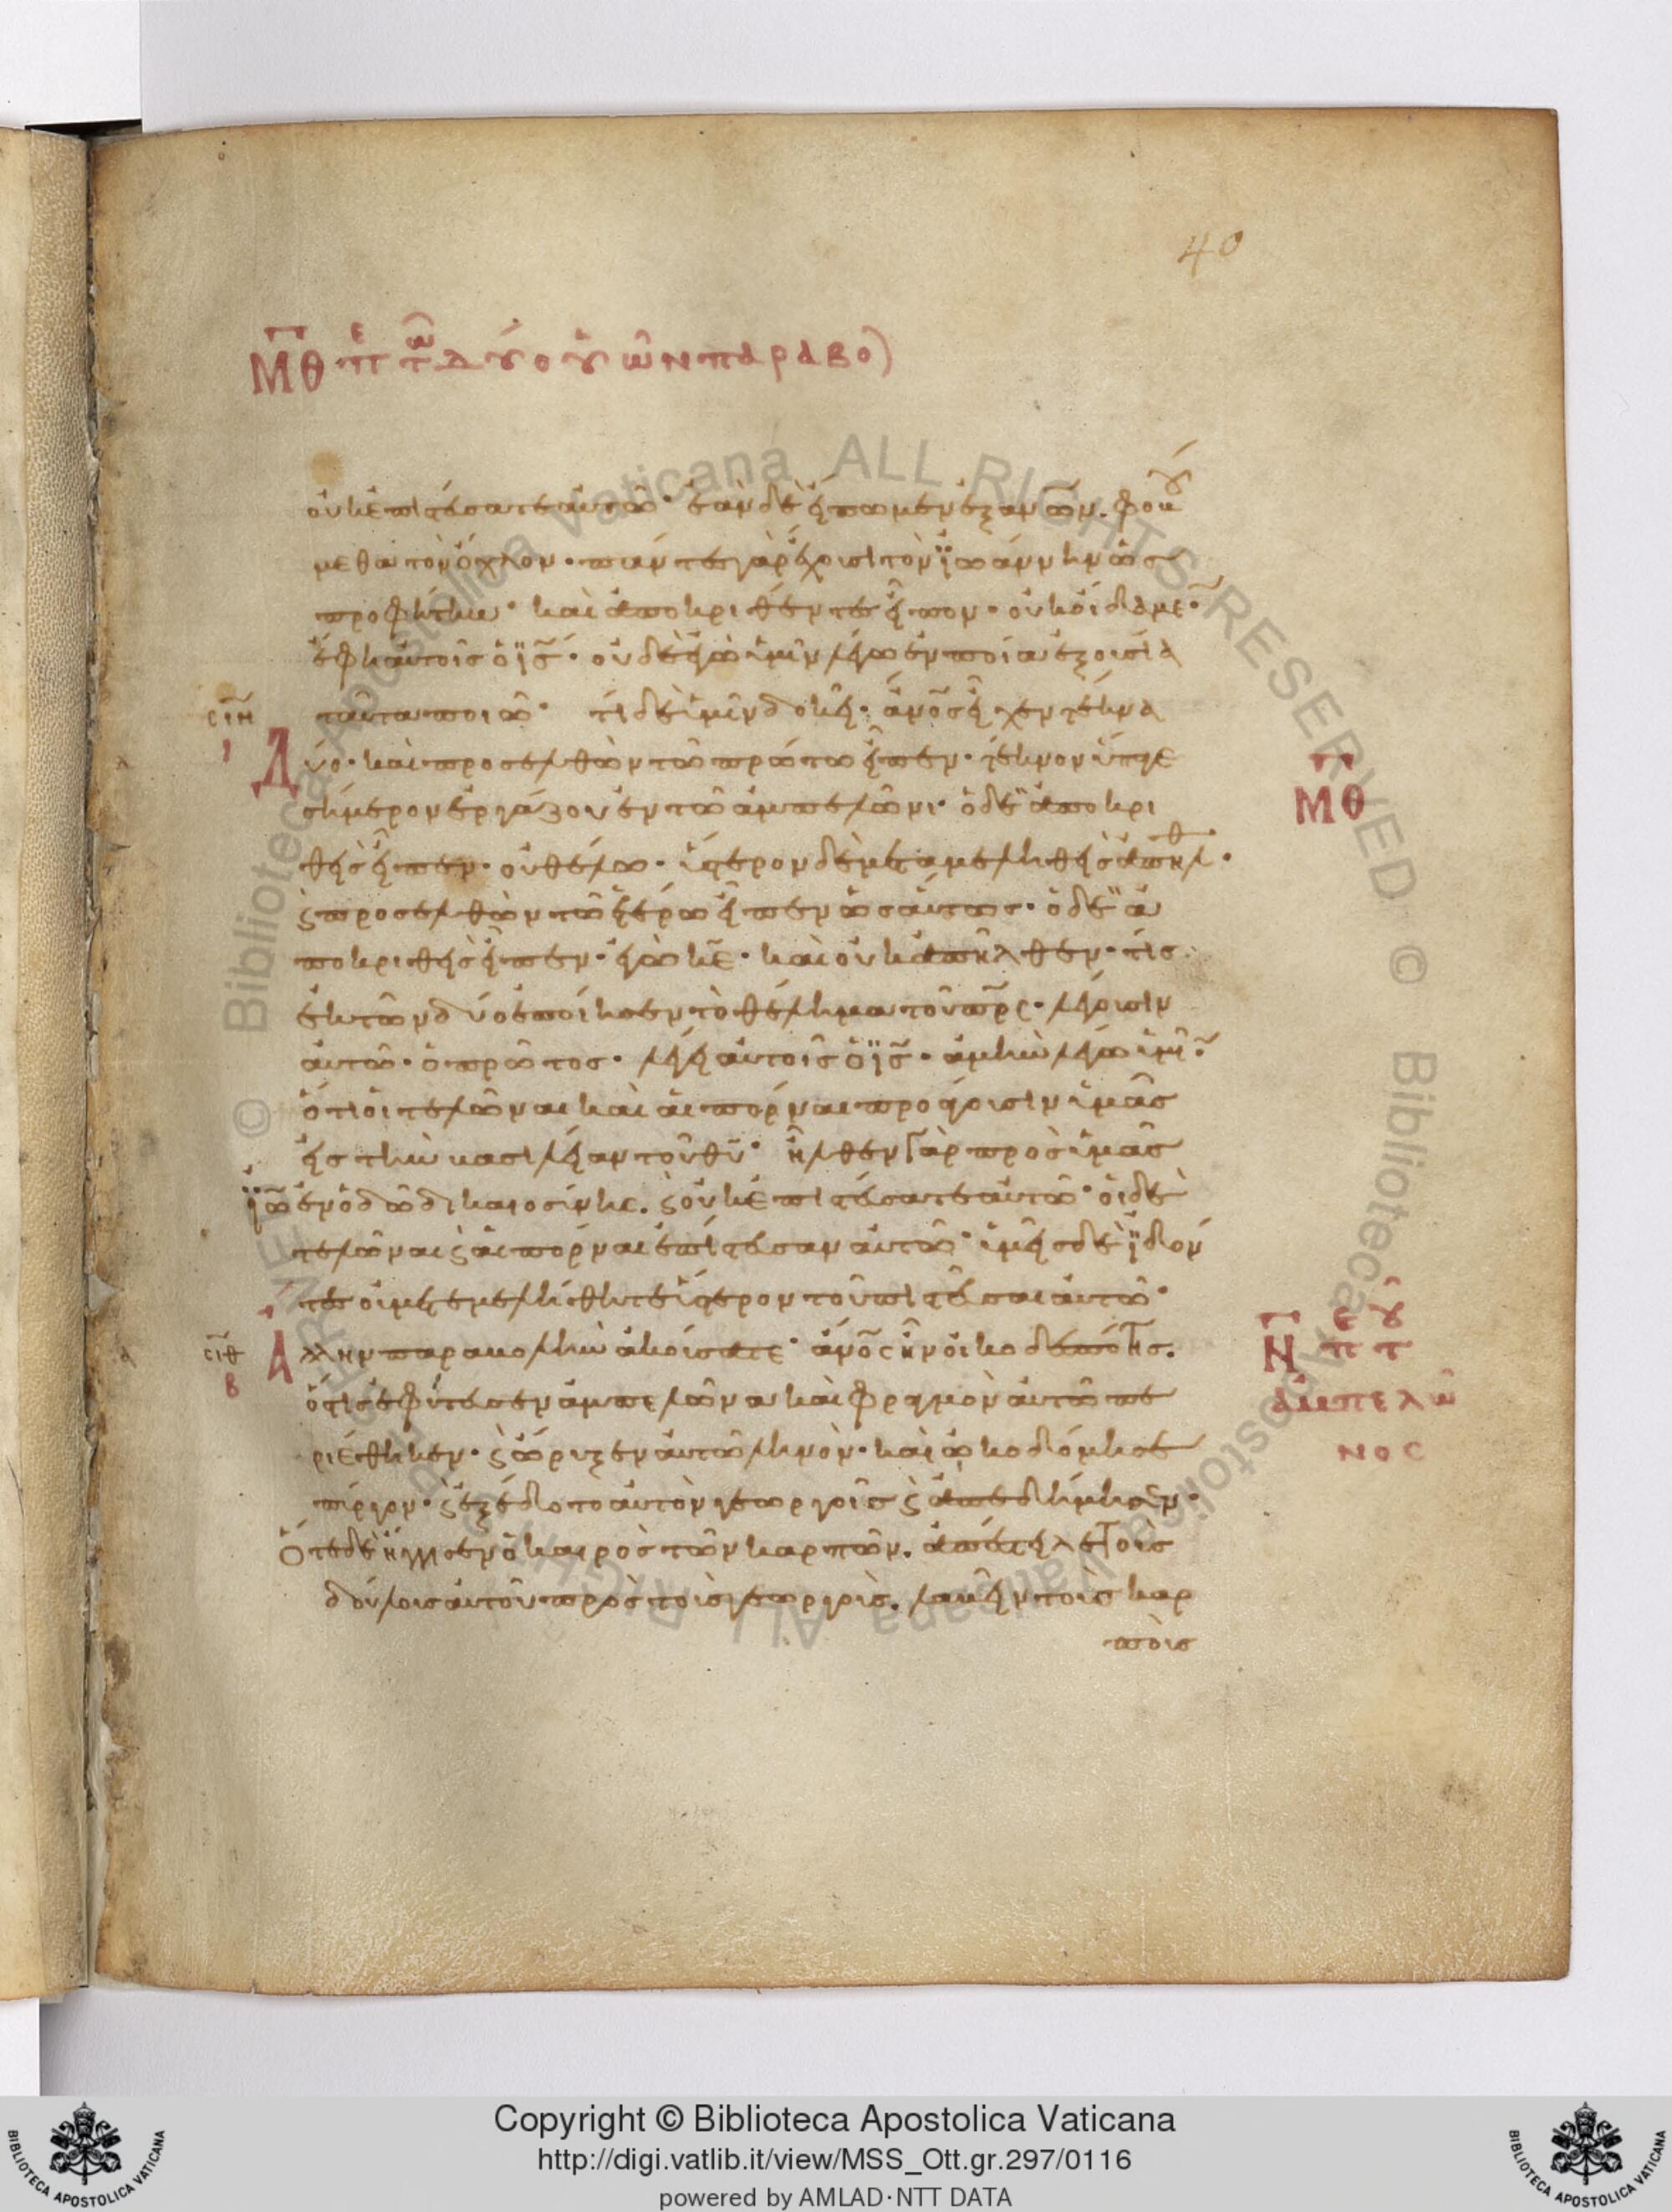 40
ΜΘ π τ δύο υἱῶν παραβο
οὐκ ἐπιστεύσατε αὐτῶ· ἐὰν δὲ εἴπωμεν ἐξ ἀνων. φοβού
μεθα τὸν ὄχλον· πάντες γὰρ ἔχουσι τὸν ϊωάννην ὡς
προφήτην· καὶ ἀποκριθέντες εἶπον· οὐκ οἴδαμε·
ἔφη αὐτοῖς ὁ ις· οὐδὲ ἐγὼ ὑμῖν λέγω ἐν ποία ἐξουσία
σιη ταῦτα ποιῶ· τί δὲ ὑμῖν δοκεῖ· ἄνος εἶχεν τέκνα
Δύο· καὶ προσελθὼν τῶ πρώτω εἶπεν· τέκνον ὕπαγε
ΜΘ
σήμερον ἐργάζου ἐν τῶ ἀμπελῶνι· ὁ δὲ ἀποκρι
θεὶς εἶπεν· οὐ θέλω· ὕστερον δὲ μεταμεληθεὶς ἀπῆλθ·
ϛ προσελθὼν τῶ ἑτέρω εἶπεν ὡσαύτως· ὁ δὲ ἀ
ποκριθεὶς εἶπεν· ἐγὼ κε· καὶ οὐκ ἀπῆλθεν· τίς
ἐκ τῶν δύο ἐποίησεν τὸ θέλημα τοῦ πρς· λέγουσιν
αὐτῶ· ὁ πρῶτος· λέγει αὐτοῖς ὁ ις· ἀμὴν λέγω ὑμῖ
ὅτι οἱ τελῶναι καὶ αἱ πόρναι προάγουσιν ὑμᾶς
εἰς τὴν βασιλείαν τοῦ θυ· ἦλθεν γὰρ πρὸς ὑμᾶς
ϊω ἐν ὁδῶ δικαιοσύνης. ϛ οὐκ ἐπιστεύσατε αὐτῶ· οἱ δὲ
τελῶναι ϛ αἱ πόρναι ἐπίστευσαν αὐτῶ· ὑμεῖς δὲ ϊδόν
τες οὐ μετεμελήθητε ὕστερον τοῦ πιστεῦσαι αὐτῶ·
σιθ Ἄλλην παραβολὴν ἀκούσατε· ἄνος ἦν οἰκοδεσπότης.
Β
Ν π τ
ὅστις ἐφύτευσεν ἀμπελῶνα καὶ φραγμὸν αὐτῶ πε
ἀμπελῶ
ριέθηκεν· ϛ ὤρυξεν αὐτῶ ληνὸν· καὶ ὠκοδόμησε
νος
πύργον· ϛ ἐξέδοτο αὐτὸν γεωργοῖς ϛ ἀπεδήμησεν·
Ὅτε δὲ ἤγγισεν ὁ καιρὸς τῶν καρπῶν. ἀπέστειλε τοὺς
δούλους αὐτοῦ πρὸς τοὺς γεωργοὺς. λαβεῖν τοὺς καρ
ποὺς
© Biblioteca Apostolica Vaticana ALL RIGHTS RESERVED © Biblioteca Apostolica Vaticana ALL RIGHTS RESERVED
BIBLIOTECA APOSTOLICA VATICANA
Copyright © Biblioteca Apostolica Vaticana
http://digi.vatlib.it/view/MSS_Ott.gr.297/0116
powered by AMLAD·NTT DATA
BIBLIOTECA APOSTOLICA VATICANA